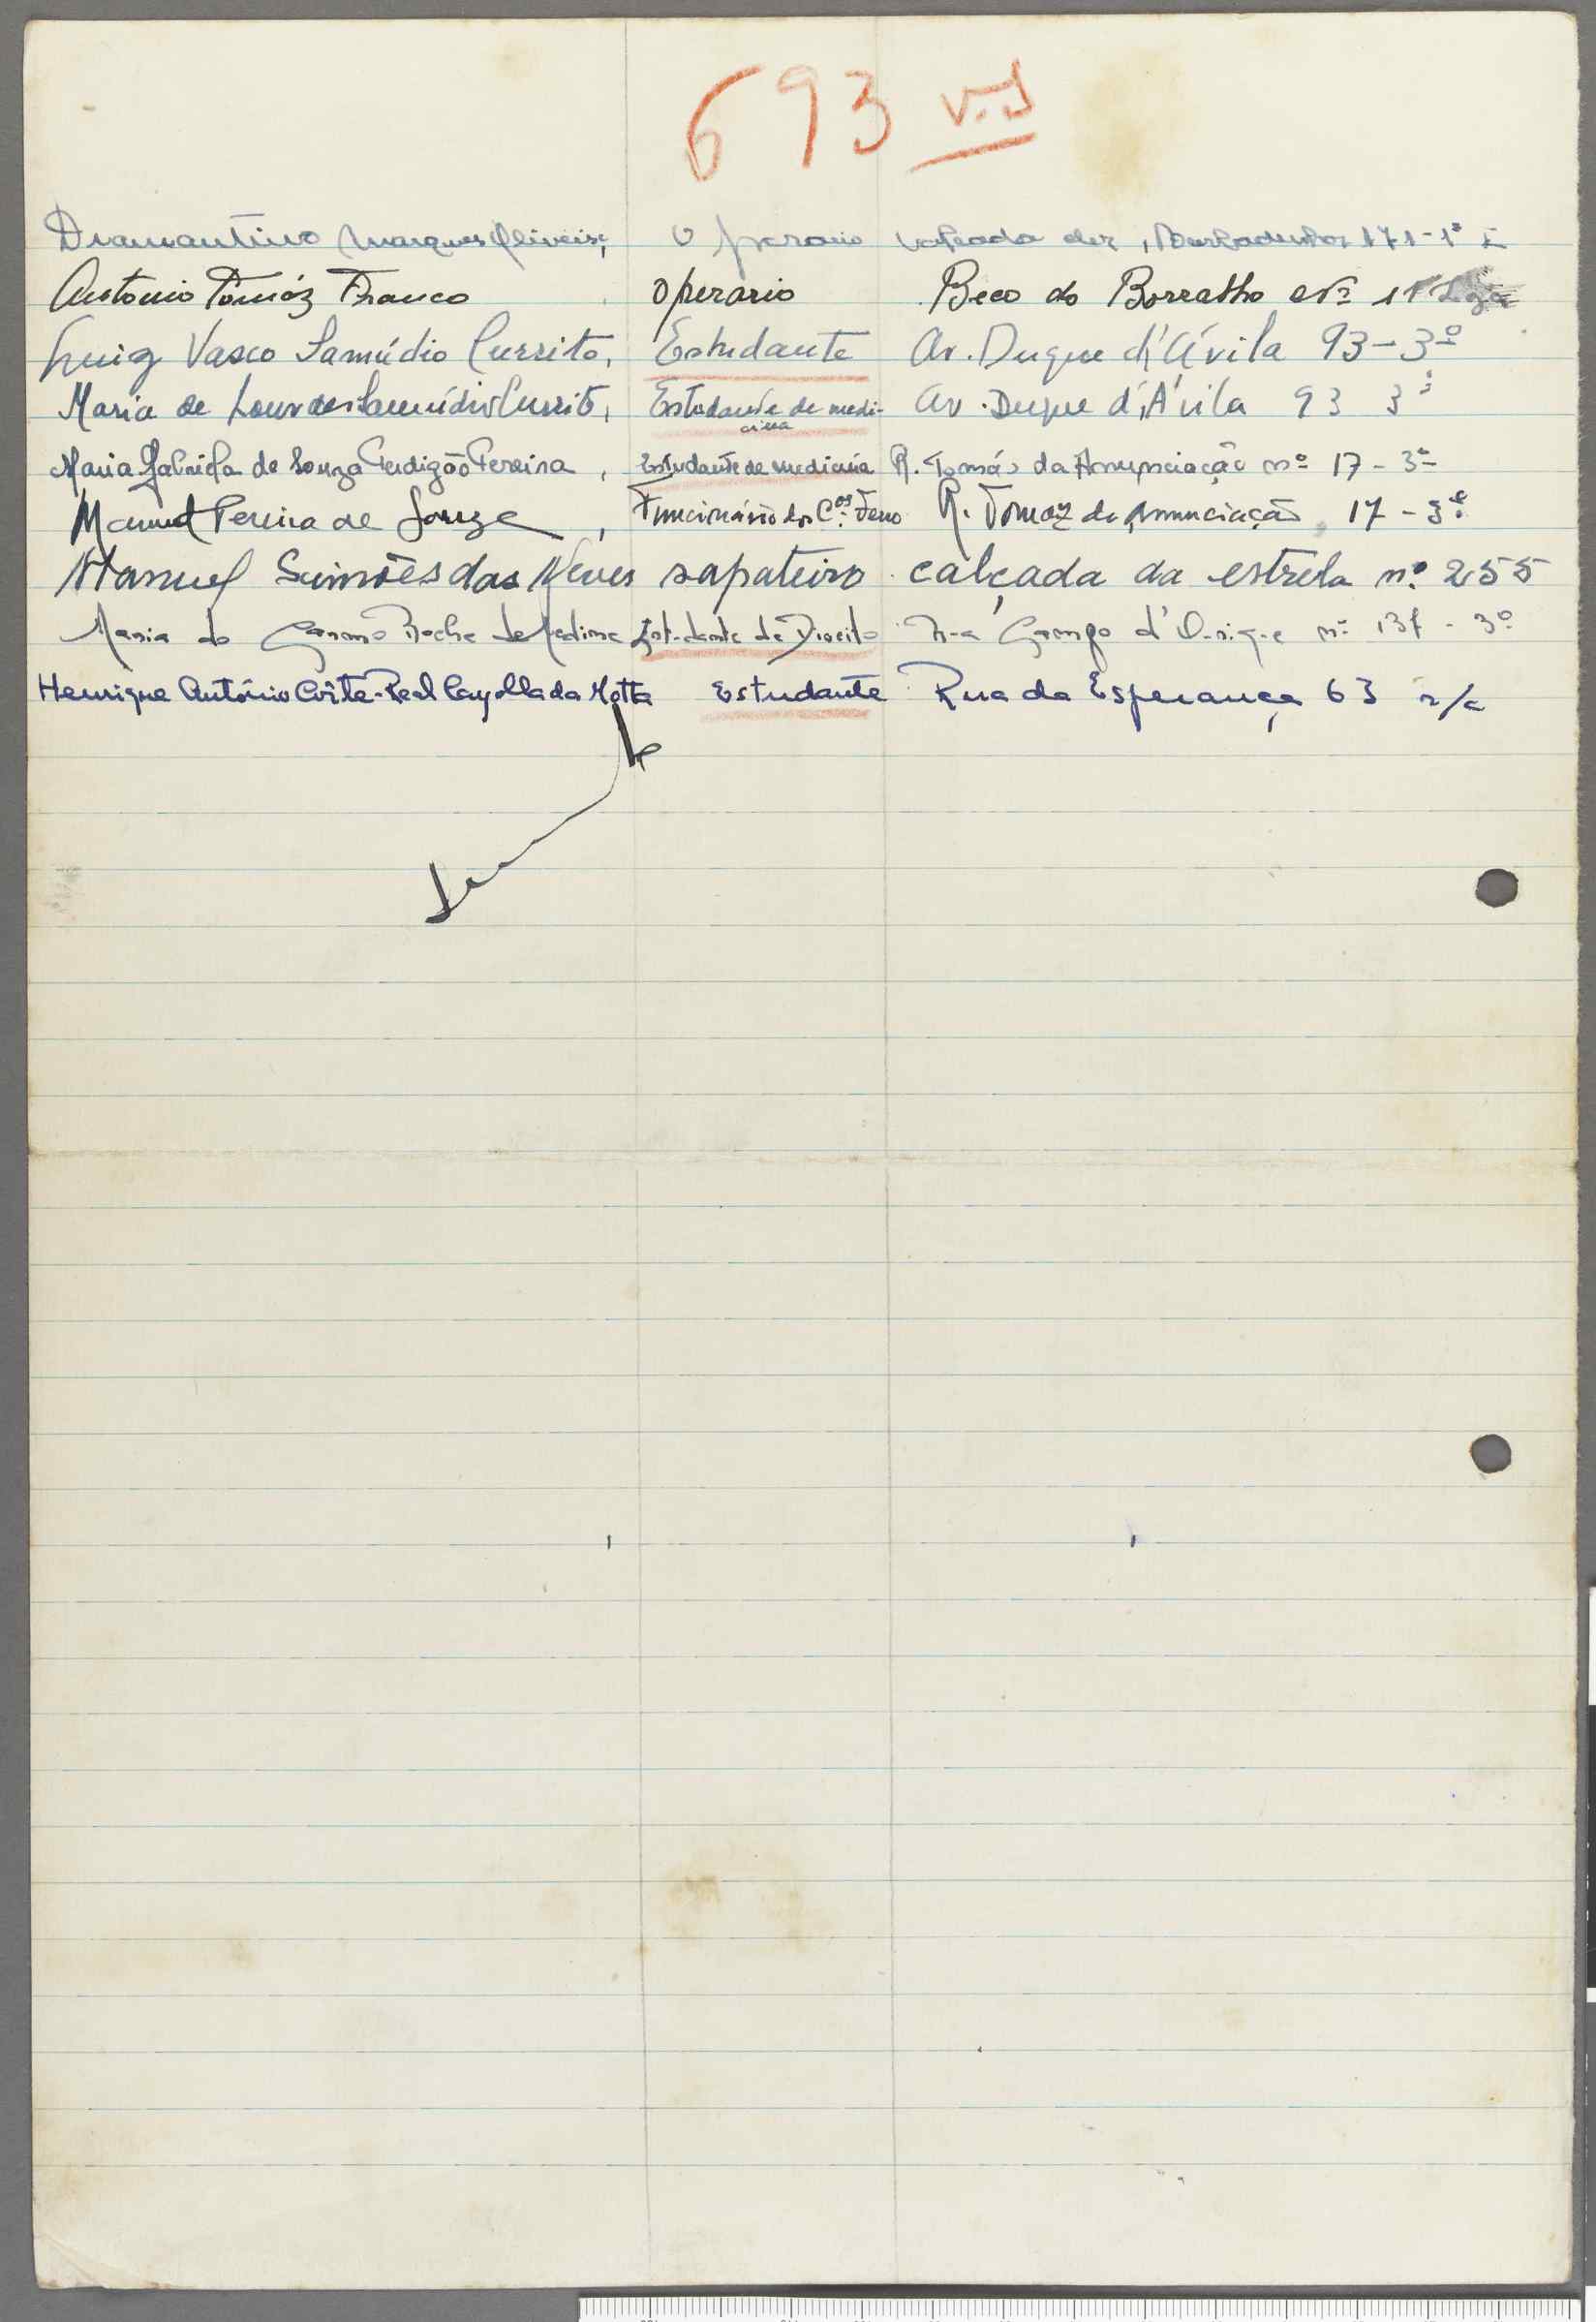 693 v.s
Diamantino Marques Oliveira, Operario Calçada dos Barbadinhos 171-1º E
Antonio Tomáz Franco operario Beco do Borralho Nº 11 Loja
Luiz Vasco Samúdio Currito, Estudante Av. Duque d'Ávila 93-3º
Maria de Lourdes Samúdio Currito, Estudante de medi- Av. Duque d'Ávila 93 3º
cina
Maria Gabriela de Souza Perdigão Pereira, Estudante de medicina R. Tomás da Anunciação nº 17-3º
Manuel Pereira de Souza, Funcionário dos C.os Ferro R. Tomaz da Anunciação 17-3º
Manuel Simões das Neves sapateiro calçada da estrela nº 255
Maria do Carmo Rocha de Medina Estudante de Direito Rua Campo d'Ourique nº 137-3º
Henrique António Côrte-Real Cayolla da Motta Estudante Rua da Esperança 63 r/c